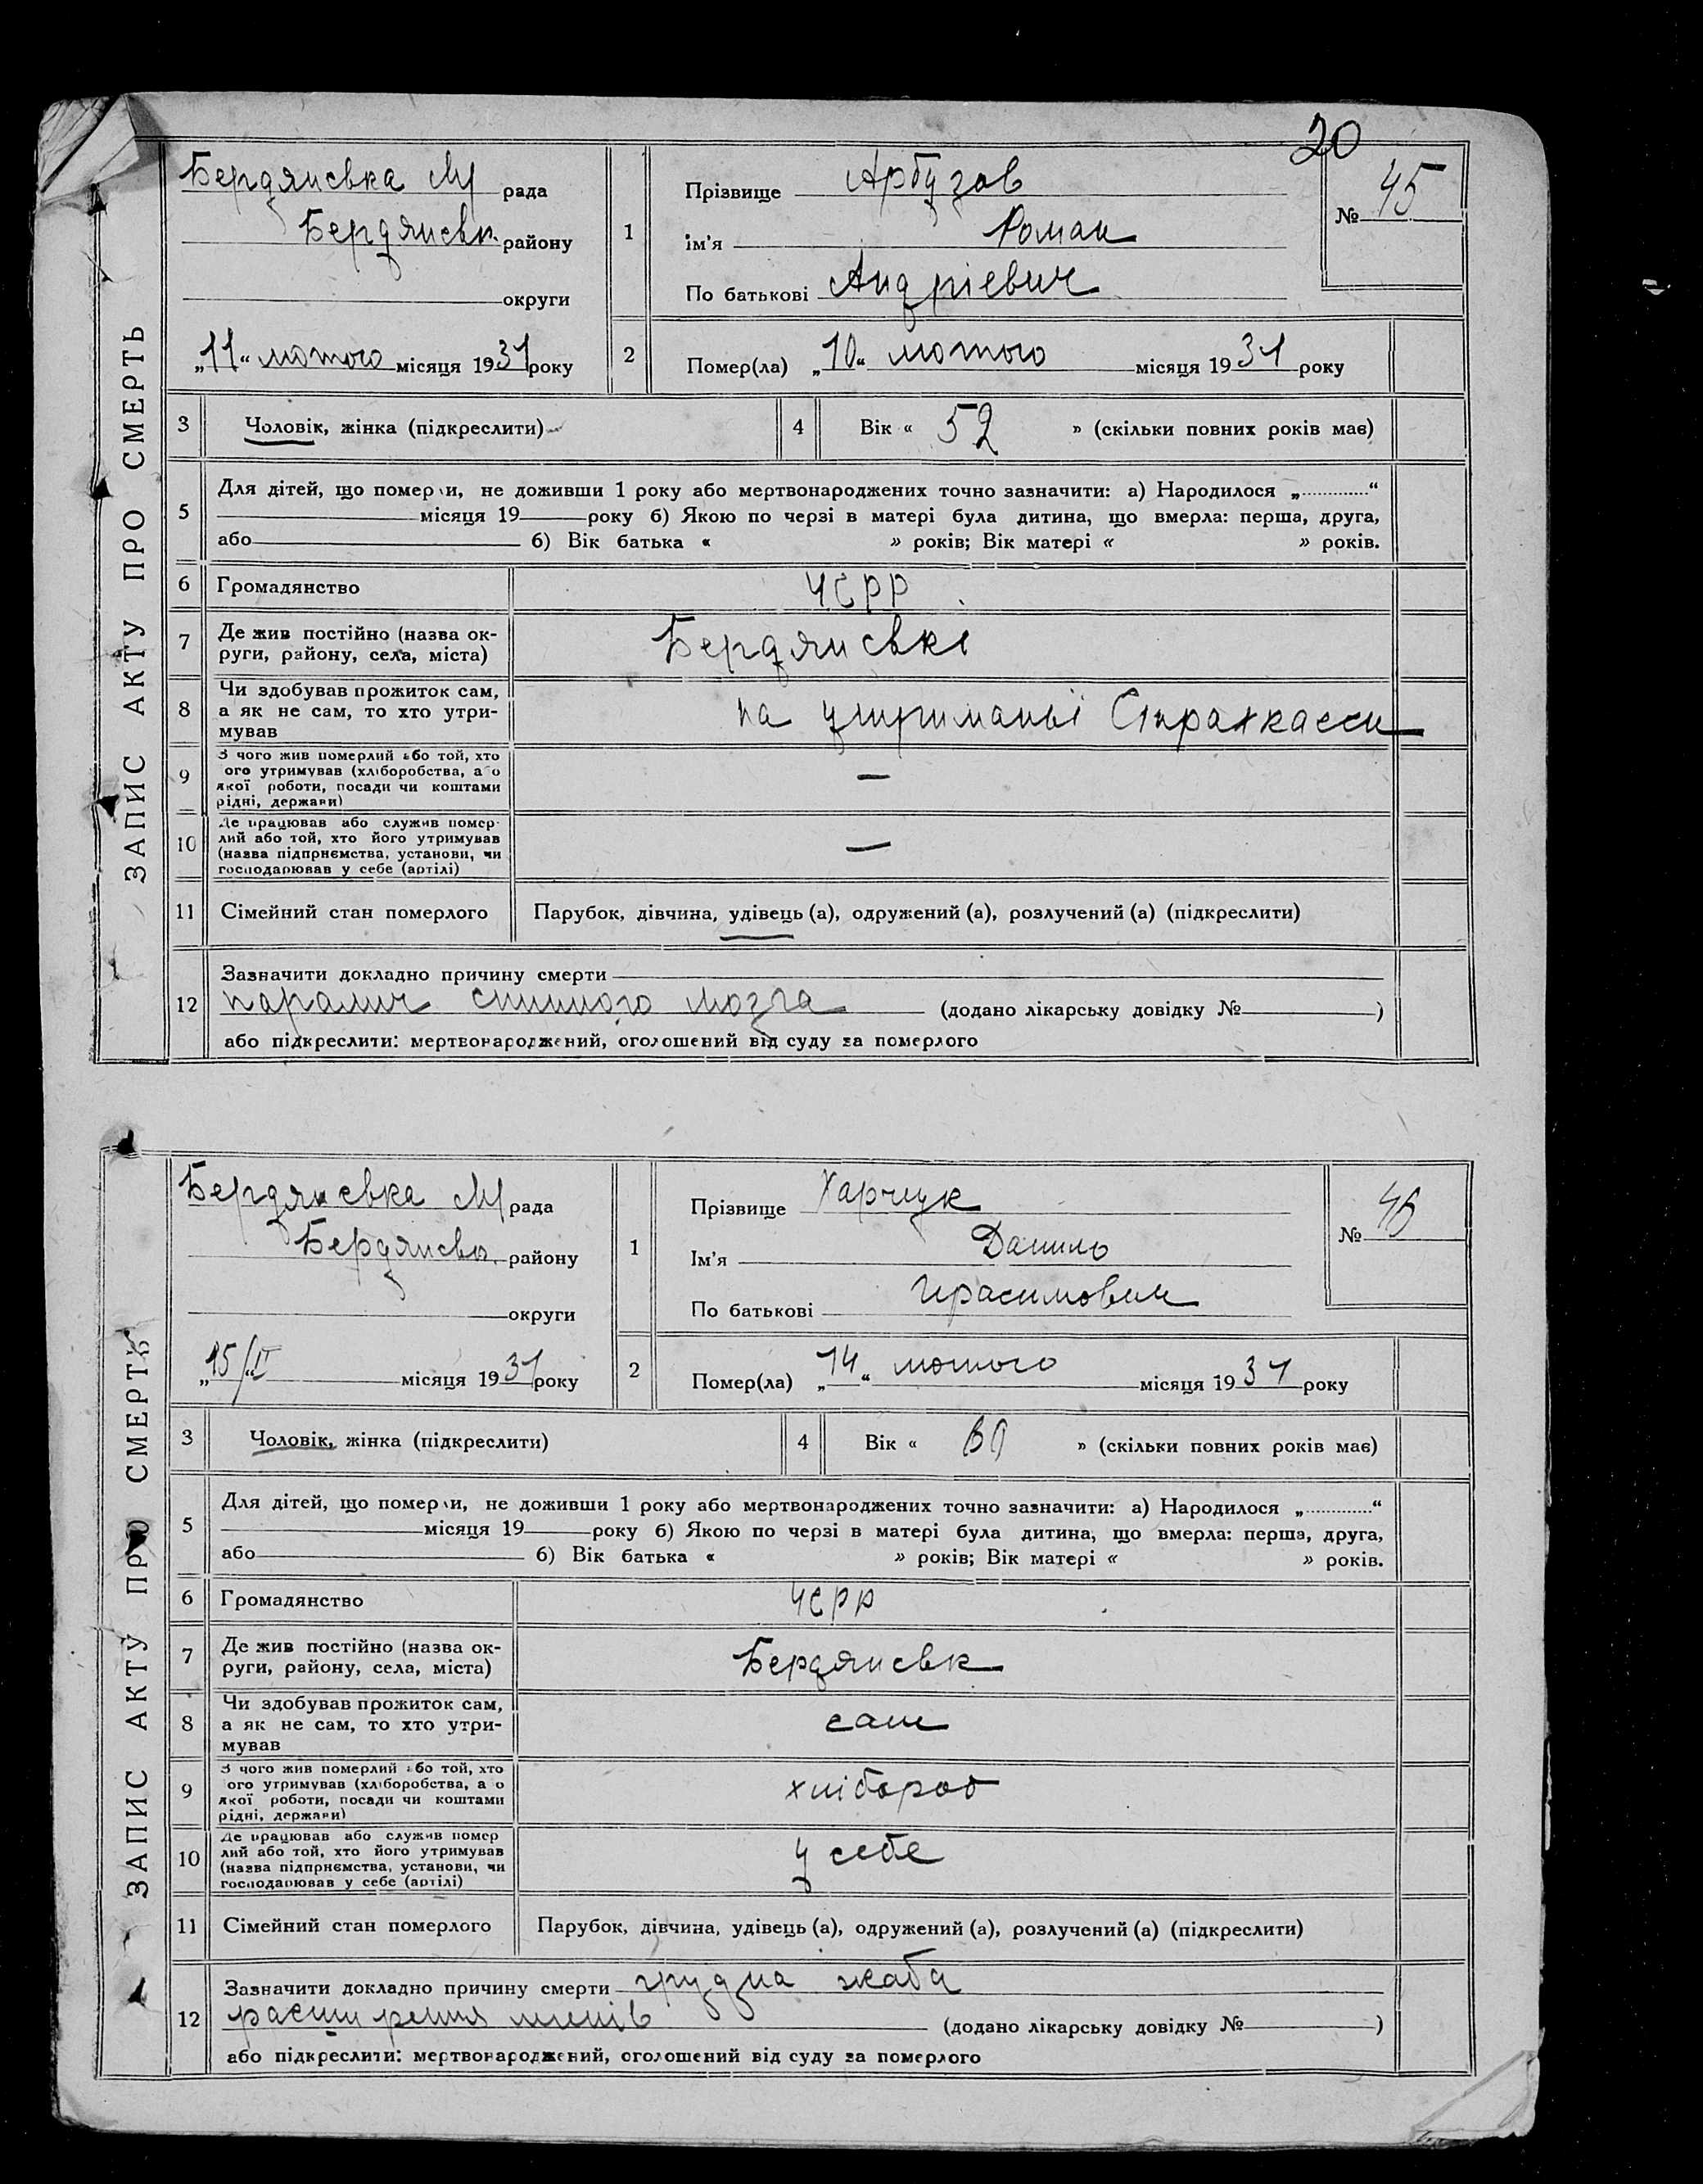 20
ЗАПИС АКТУ ПРО СМЕРТЬ
Бердянська М рада
Бердянськ. району
округи
„11“ лютого місяця 1931 року
1
Прізвище Арбузов
ім'я Роман
По батькові Андрієвич
№ 45
2 Помер(ла) „10“ лютого місяця 1931 року
3 Чоловік, жінка (підкреслити)
4 Вік « 52 » (скільки повних років має)
5 Для дітей, що померли, не доживши 1 року або мертвонароджених точно зазначити: а) Народилося „............“
місяця 19 року б) Якою по черзі в матері була дитина, що вмерла: перша, друга,
або б) Вік батька « » років; Вік матері « » років.
6 Громадянство УСРР
7 Де жив постійно (назва ок-
руги, району, села, міста) Бердянські
8 Чи здобував прожиток сам,
а як не сам, то хто утри-
мував на утриманьі Страхкасси
9 З чого жив померлий або той, хто
ого утримував (хліборобства, а о
якої роботи, посади чи коштами
рідні, держави) —
10 Де працював або служив помер-
лий або той, хто його утримував
(назва підприємства, установи, чи
господарював у себе (артілі) —
11 Сімейний стан померлого Парубок, дівчина, удівець (а), одружений (а), розлучений (а) (підкреслити)
12 Зазначити докладно причину смерти
паралич спинного мозга (додано лікарську довідку № )
або підкреслити: мертвонароджений, оголошений від суду за померлого
ЗАПИС АКТУ ПРО СМЕРТЬ
Бердянська М рада
Бердянськ. району
округи
„15/II“ місяця 1931 року
1
Прізвище Харчук
Ім'я Данило
По батькові Герасимович
№ 46
2 Помер(ла) „14“ лютого місяця 1931 року
3 Чоловік, жінка (підкреслити)
4 Вік « » (скільки повних років має)
5 Для дітей, що померли, не доживши 1 року або мертвонароджених точно зазначити: а) Народилося „............“
місяця 19 року б) Якою по черзі в матері була дитина, що вмерла: перша, друга,
або б) Вік батька « » років; Вік матері « » років.
6 Громадянство УСРР
7 Де жив постійно (назва ок-
руги, району, села, міста) Бердянськ
8 Чи здобував прожиток сам,
а як не сам, то хто утри-
мував сам
9 З чого жив померлий або той, хто
ого утримував (хліборобства, а о
якої роботи, посади чи коштами
рідні, держави) хлібороб
10 Де працював або служив помер
лий або той, хто його утримував
(назва підприємства, установи, чи
господарював у себе (артілі) у себе
11 Сімейний стан померлого Парубок, дівчина, удівець (а), одружений (а), розлучений (а) (підкреслити)
12 Зазначити докладно причину смерти грудна жаба
(додано лікарську довідку № )
або підкреслити: мертвонароджений, оголошений від суду за померлого